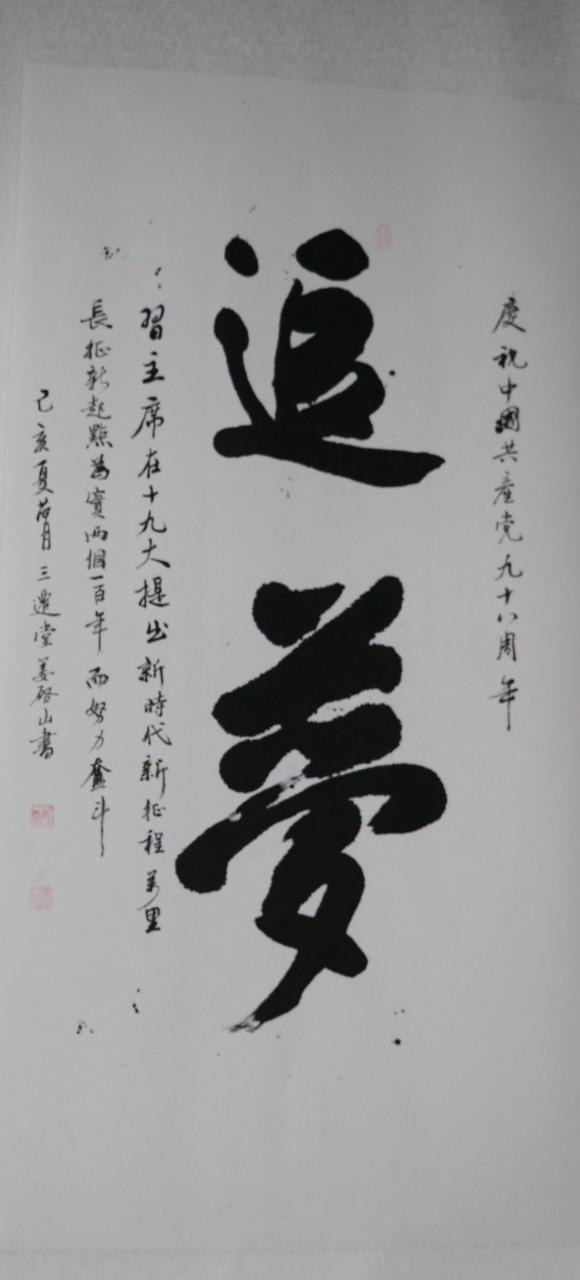 慶祝中國共產党九十八周年
追夢
習主席在十九大提出新時代新征程萬里
長征新起點為實兩個一百年而努力奮斗
己亥夏荷月三遷堂姜啓山書